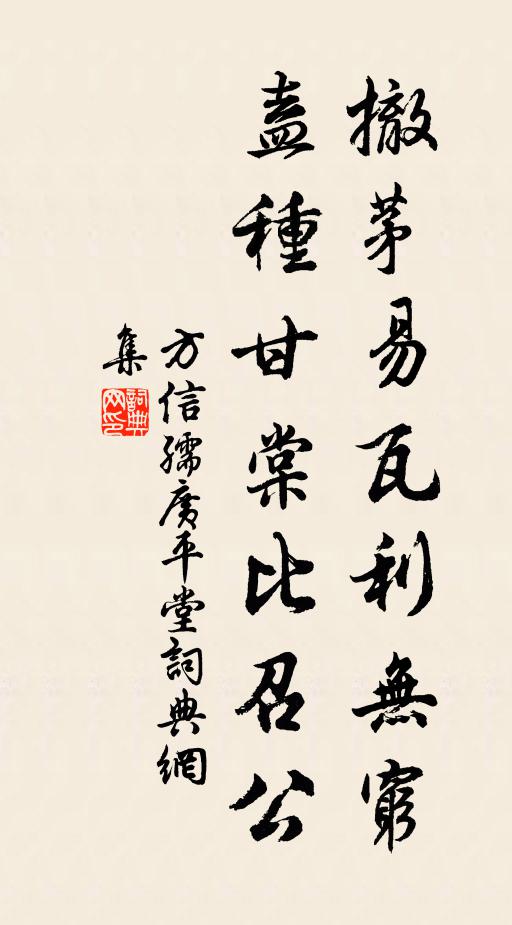 撤茅易瓦利無窮
盍種甘棠比召公
方信孺廣平堂詞典網
集
詞典網印